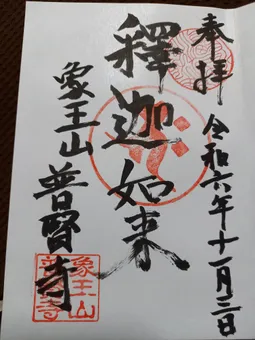 奉拝
令和六年十一月二日
釋迦如来
象王山普賢寺
象王山
普賢寺